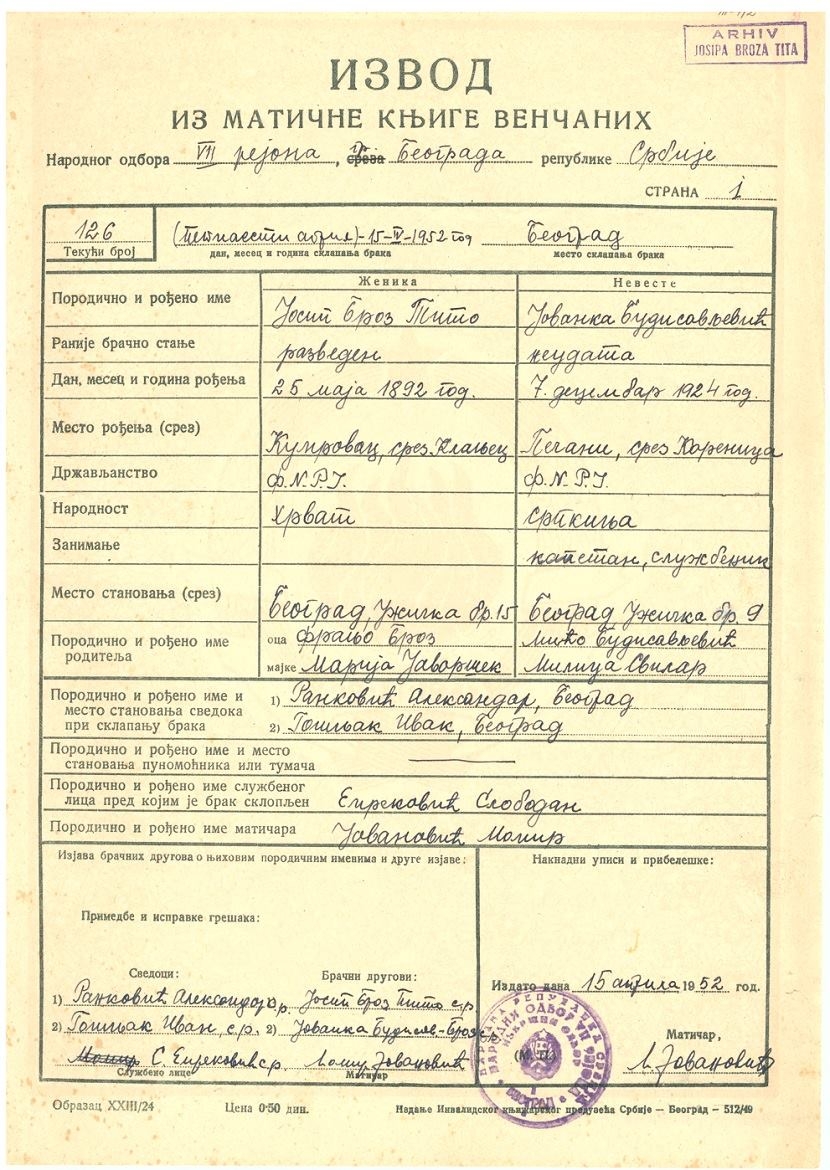 ARHIV
JOSIPA BROZA TITA
ИЗВОД
ИЗ МАТИЧНЕ КЊИГЕ ВЕНЧАНИХ
Народног одбора VII рејона, гр. среза Београда републике Србије
СТРАНА 1
126 (Петнаести април) - 15-IV-1952 год Београд
Текући број дан, месец и година склапања брака место склапања брака
Женика Невесте
Породично и рођено име Јосип Броз Тито Јованка Будисављевић
Раније брачно стање разведен неудата
Дан, месец и година рођења 25 маја 1892 год. 7. децембар 1924 год.
Место рођења (срез) Купровац, срез Клањец Пећани, срез Кореница
Држављанство Ф.N.Р.Ј. Ф.N.Р.Ј.
Народност Хрват српкиња
Занимање капетан, службеник
Место становања (срез) Београд, Ужичка бр. 15 Београд Ужичка бр. 9
Породично и рођено име родитеља оца Фрањо Броз Мићо Будисављевић
мајке Марија Јаворшек Милица Свилар
Породично и рођено име и 1) Ранковић Александар, Београд
место становања сведока
при склапању брака 2) Гошњак Иван, Београд
Породично и рођено име и место
становања пуномоћника или тумача
Породично и рођено име службеног
лица пред којим је брак склопљен Слободан
Породично и рођено име матичара Јовановић Момир
Изјава брачних другова о њиховим породичним именима и друге изјаве: Накнадни уписи и прибелешке:
Примедбе и исправке грешака:
Сведоци: Брачни другови:
Издато дана 15 априла 1952 год.
1) Ранковић Александар с.р. Јосип Броз Тито с.р.
2) Гошњак Иван, с.р. 2) Јованка Будисав-Броз
Матичар,
(М. П.)
С. с.р. Момир Јовановић М. Јовановић
Службено лице Матичар
Образац XXIII/24 Цена 0·50 дин. Издање Инвалидског књижарског предузећа Србије — Београд — 512/49